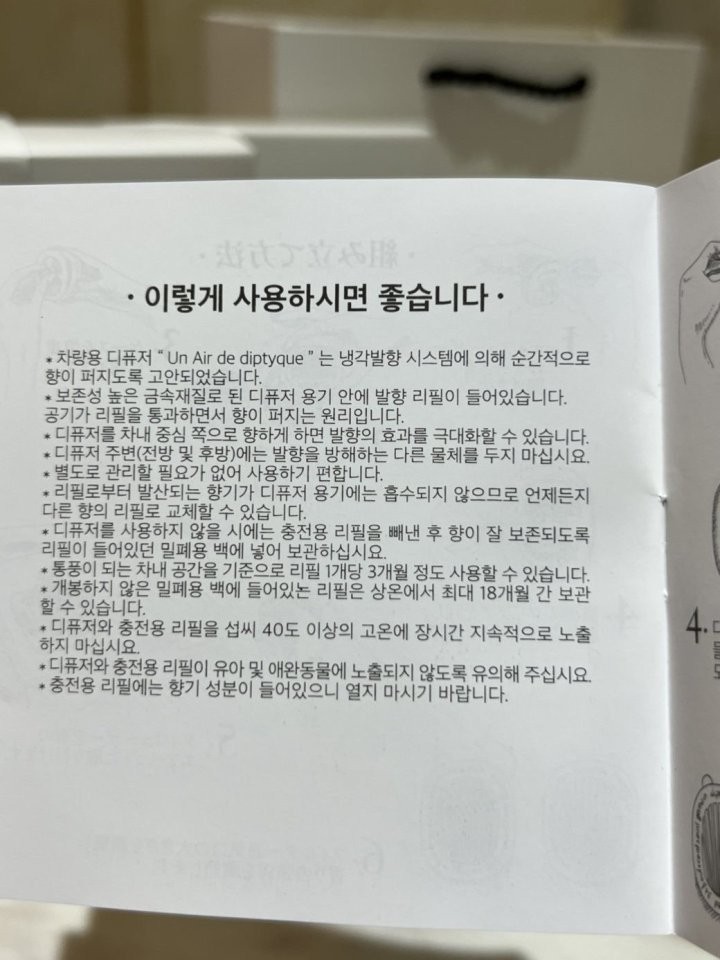 · 이렇게 사용하시면 좋습니다 ·
* 차량용 디퓨저 “ Un Air de diptyque ” 는 냉각발향 시스템에 의해 순간적으로
향이 퍼지도록 고안되었습니다.
* 보존성 높은 금속재질로 된 디퓨저 용기 안에 발향 리필이 들어있습니다.
공기가 리필을 통과하면서 향이 퍼지는 원리입니다.
* 디퓨저를 차내 중심 쪽으로 향하게 하면 발향의 효과를 극대화할 수 있습니다.
* 디퓨저 주변(전방 및 후방)에는 발향을 방해하는 다른 물체를 두지 마십시요.
* 별도로 관리할 필요가 없어 사용하기 편합니다.
* 리필로부터 발산되는 향기가 디퓨저 용기에는 흡수되지 않으므로 언제든지
다른 향의 리필로 교체할 수 있습니다.
* 디퓨저를 사용하지 않을 시에는 충전용 리필을 빼낸 후 향이 잘 보존되도록
리필이 들어있던 밀폐용 백에 넣어 보관하십시요.
* 통풍이 되는 차내 공간을 기준으로 리필 1개당 3개월 정도 사용할 수 있습니다.
* 개봉하지 않은 밀폐용 백에 들어있논 리필은 상온에서 최대 18개월 간 보관
할 수 있습니다.
* 디퓨저와 충전용 리필을 섭씨 40도 이상의 고온에 장시간 지속적으로 노출
하지 마십시요.
* 디퓨저와 충전용 리필이 유아 및 애완동물에 노출되지 않도록 유의해 주십시요.
* 충전용 리필에는 향기 성분이 들어있으니 열지 마시기 바랍니다.
4.